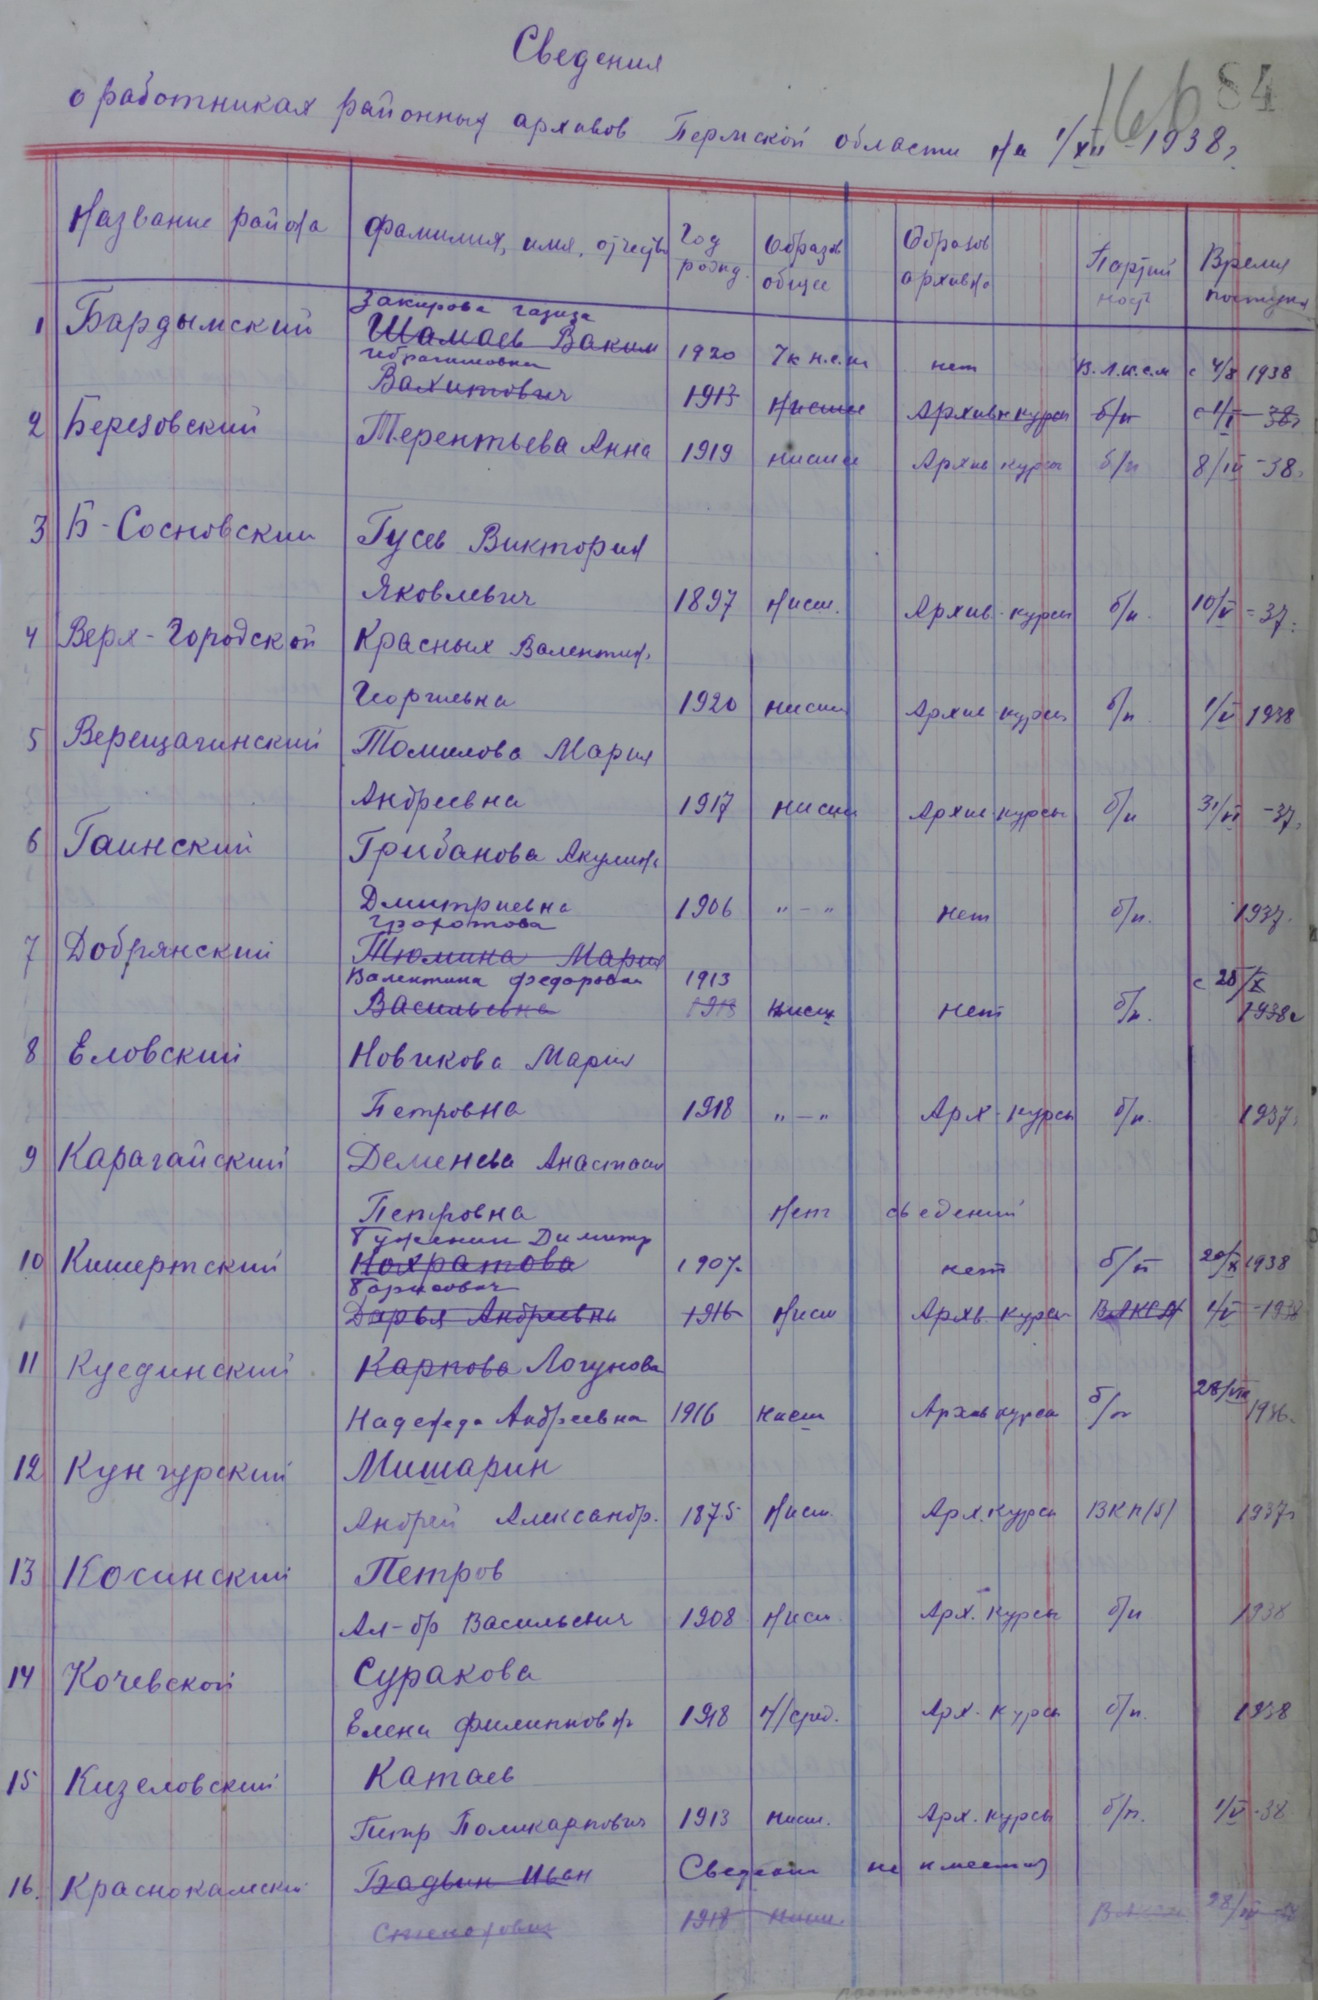 Сведения
84
о работниках районных архивов Пермской области на 1/XII - 1938 г
Название района Фамилия, имя, отчество Год рожд. Образов общее Образов архивно Партий ность Время поступл
Закирова Газиза
1 Бардымский Шамаев Ваким 1920 7 к н.с.ш нет В.Л.К.С.М с 4/X 1938
Ибрагимовна
Вахитович 1913 Нисше Архивн курсы б/п с 1/V - 38г
2 Березовский Терентьева Анна 1919 нисшее Архив курсы б/п 8/IV - 38г
3 Б-Сосновский Гусев Викторин
Яковлевич 1897 Нисш. Архив-курсы б/п. 10/V - 37г.
4 Верх-Городской Красных Валентин.
Георгиевна 1920 нисш Архив курсы б/п 1/V 1938
5 Верещагинский Томилова Мария
Андреевна 1917 нисш Архив курсы б/п 31/VII - 37г
6 Гаинский Грибанова Акулина
Дмитриевна 1906 " - " нет б/п. 1937.
7 Добрянский Тюмина Мария
Валентина Федоровна 1913 с 28/X
Васильевна 1913 нисш нет б/п. 1938г
8 Еловский Новикова Мария
Петровна 1918 " - " Арх-курсы б/п. 1937г
9 Карагайский Деменева Анастасия
Петровна Нет сведений
Димитр
10 Кишертский Нохратова 1907. нет б/п 20/X 1938
Борисович
Дарья Андреевна 1916 Нисш Архв курсы ВЛКСМ 1/V - 1938
11 Куединский Карпова Логунова
Надежда Андреевна 1916 нисш Архив курсы б/п 28/VIII 1936.
12 Кунгурский Мишарин
Андрей Александр. 1875 Нисш. Арх.курсы ВКП/б/ 1937г
13 Косинский Петров
Ал-др Васильевич 1908 Нисш Арх. курсы б/п 1938
14 Кочевской Суракова
Елена Филипповн 1918 н/сред. Арх-курсы б/п. 1938
15 Кизеловский Катаев
Петр Поликарпович 1913 нисш. Арх. курсы б/п. 1/V - 38
16. Краснокамский Иван Сведений не имеется
1918 нисш.